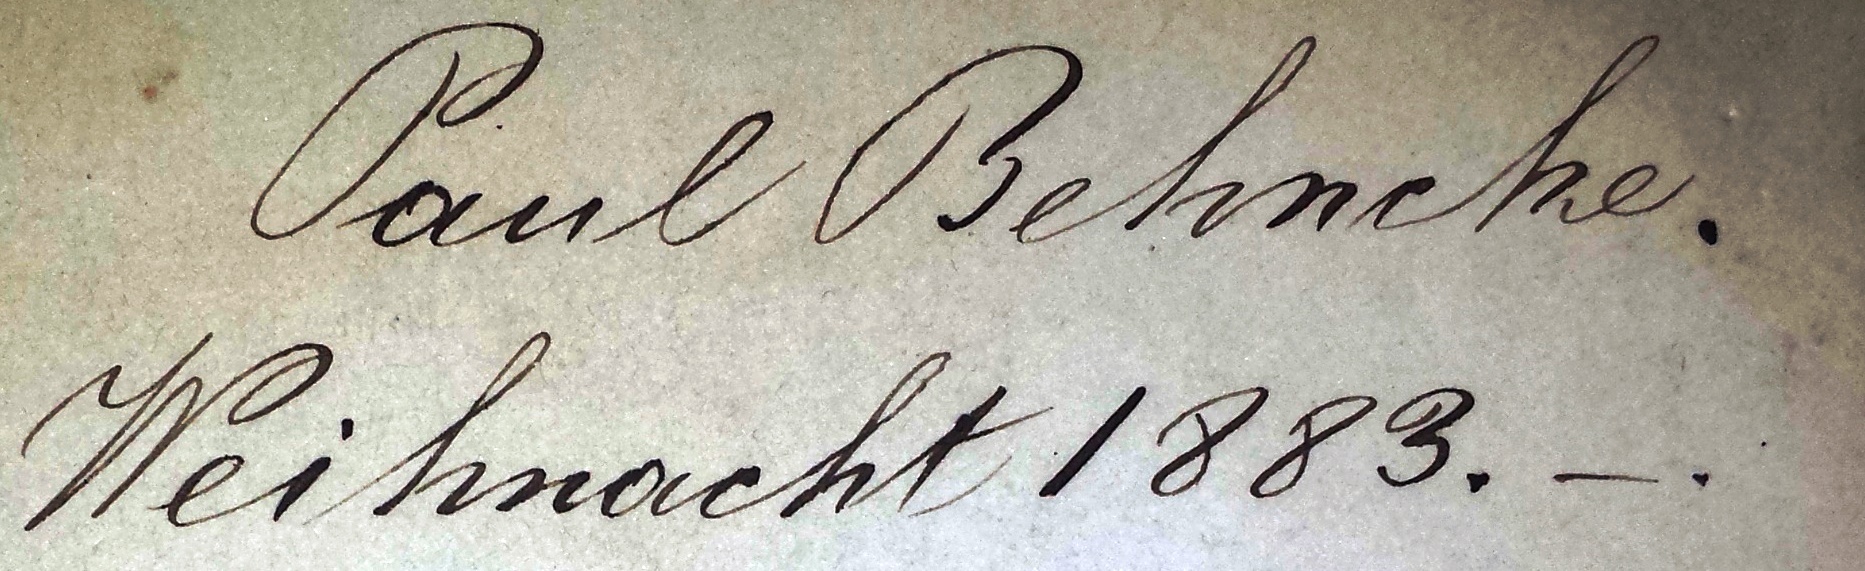 Paul Behncke.
Weihnacht 1883. —.